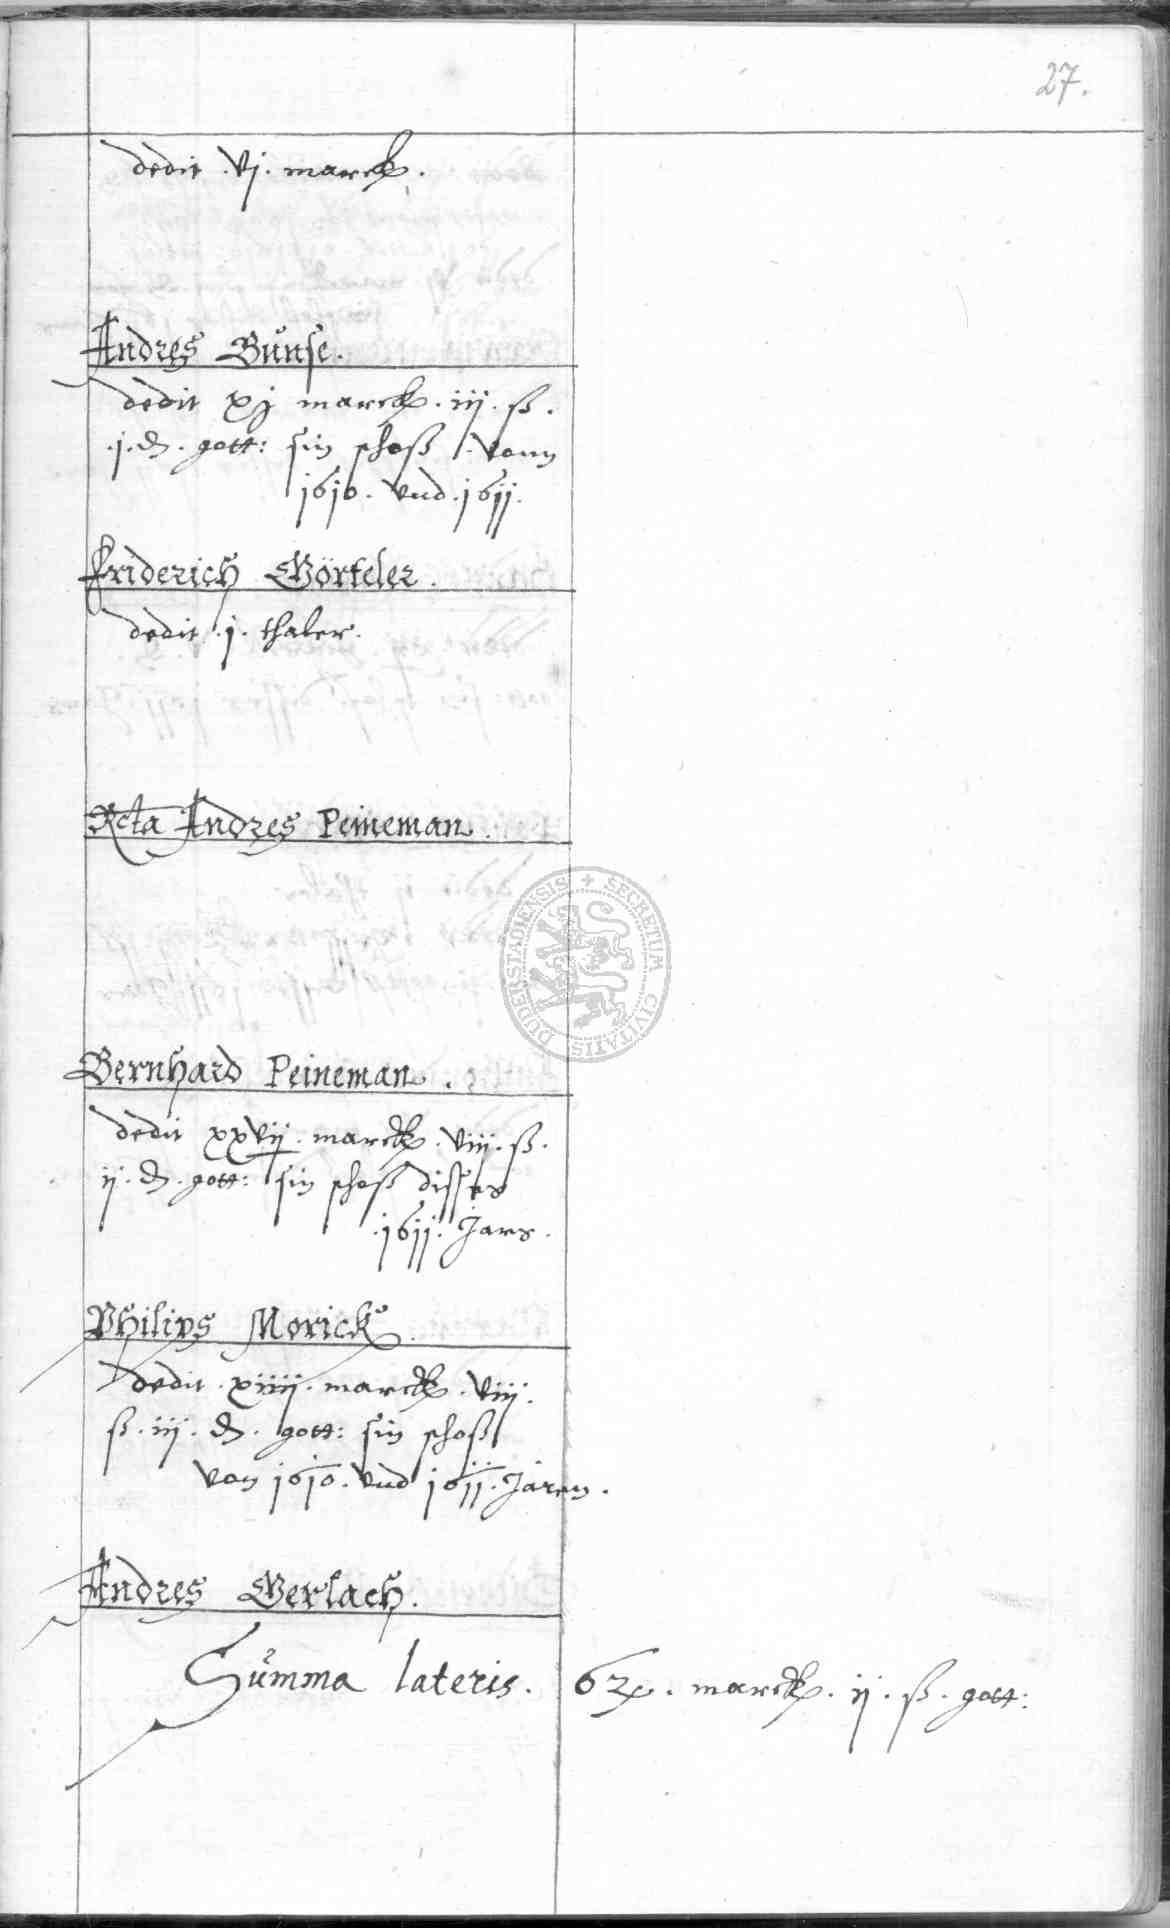 27.
dedit . vj . marck .
Andres Bunse.
dedit xj marck . iij . ß .
. j . d . gott: sin schoß . vonn
1610 . vnd . 1611 .
Friderich Görteler .
dedit . j . thaler .
Rcta Andres Peineman .
Bernhard Peineman .
dedit xxvij . marck . viij . ß .
ij . d . gott: sin schoß disses
. 1611 . Jars .
Philips Morick .
dedit . xiiij . marck . viij .
ß . iij . d . gott: sin schoß
von 1610 . vnd 1611 . Jaren .
Andres Gerlach .
Summa lateris . marck . ij . ß . gott:
SECRETUM CIVITATIS DUDERSTADIENSIS